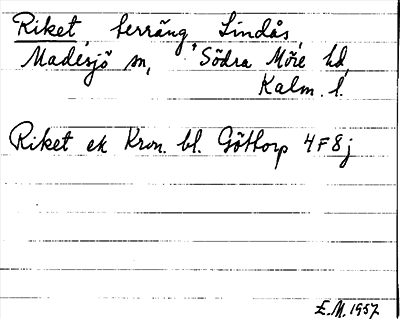 Riket, terräng, Lindås,
Madesjö sn, Södra Möre hd,
Kalm. l.
Riket ek Kron. bl. Göttorp 4F8j
E.M. 1957